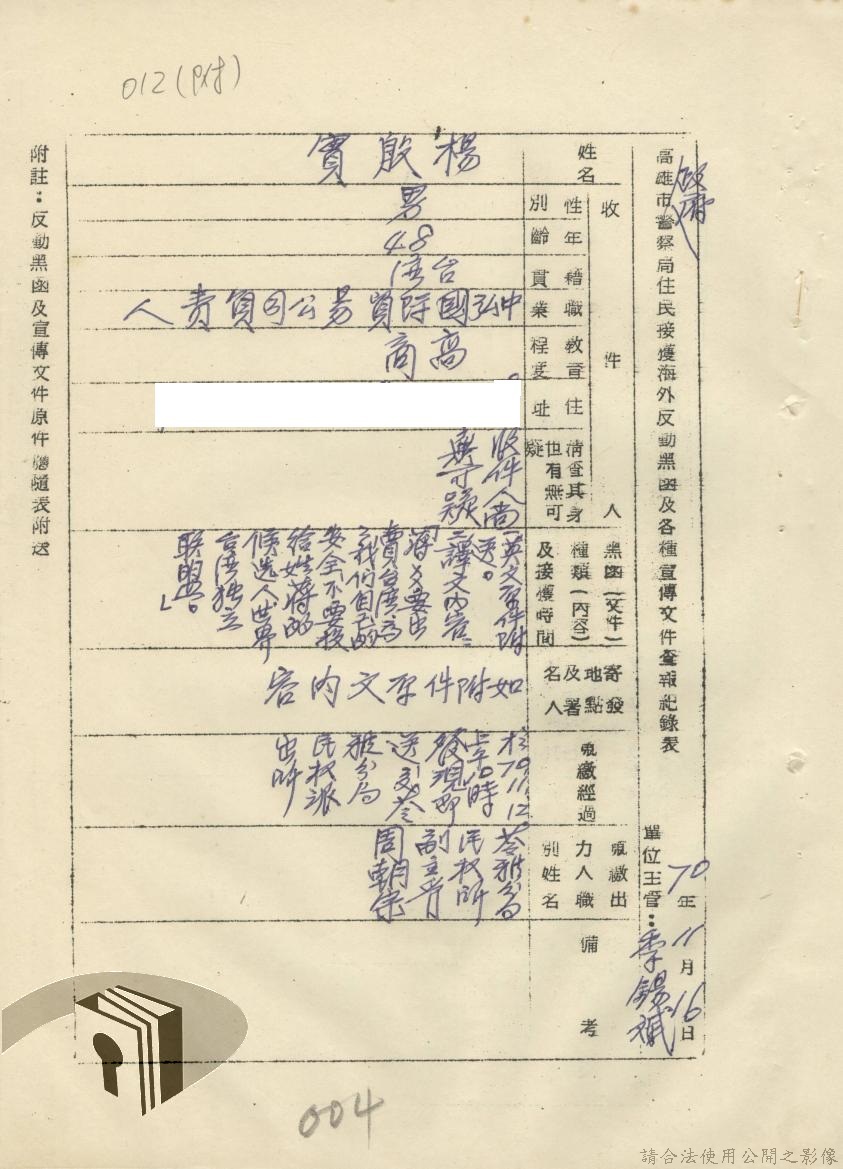 012(附)
高雄市警察局住民接獲海外反動黑函及各種宣傳文件查報紀錄表
70年11月16日
單位主管：季錫斌
收件人
姓名
楊殷寶
性別
男
年齡
48
籍貫
台湾
職業
中弘國際貿易公司負責人
教育程度
高商
住址
清查其身世有無可疑
收件人尚無可疑
黑函(文件)種類(內容)及接獲時間
一英文原件附送。
二譯文內容：
蔣
要出
賣台湾為
了我们自己的
安全不要投
给姓蔣的
候选人世界
台湾独立
联盟。」
寄發地點及署名人
如附件原文內容
呈繳經過
於70.11.12.
上午10時
發現即
送交苓
雅分局
民权派
出所
呈繳出力人職別姓名
苓雅分局
民权所
副主管
周朝
備考
附註：反動黑函及宣傳文件原件應隨表附送
004
請合法使用公開之影像